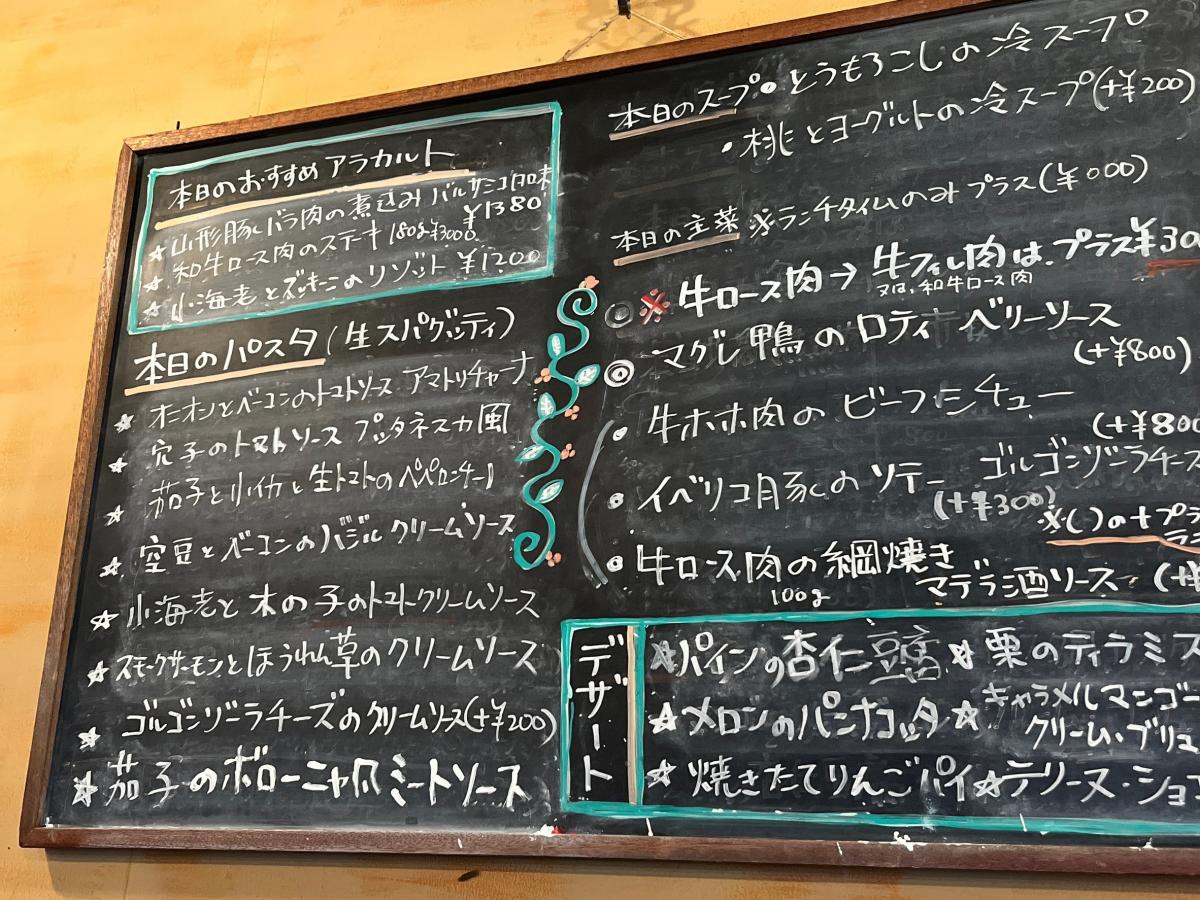 本日のおすすめアラカルト
☆山形豚バラ肉の煮込み バルサミコ風味
¥1380
☆和牛ロース肉のステーキ 180g¥3000
☆小海老とズッキーニのリゾット ¥1200
本日のパスタ(生スパゲッティ)
☆オニオンとベーコンのトマトソース アマトリチャーナ
☆穴子のトマトソース プッタネスカ風
☆茄子と小イカと生トマトのペペロンチーノ
☆空豆とベーコンのバジルクリームソース
☆小海老と木の子のトマトクリームソース
☆スモークサーモンとほうれん草のクリームソース
☆ゴルゴンゾーラチーズのクリームソース(+¥200)
☆茄子のボローニャ風ミートソース
本日のスープ・とうもろこしの冷スープ
・桃とヨーグルトの冷スープ(+¥200)
本日の主菜 ※ランチタイムのみプラス(¥000)
◎※牛ロース肉→牛フィレ肉は、プラス¥30
又は、和牛ロース肉
◎マグレ鴨のロティ ベリーソース
(+¥800)
・牛ホホ肉のビーフシチュー
(+¥800
・イベリコ豚のソテー ゴルゴンゾーラチーズ
(+¥300)
※( )の+プラ
・牛ロース肉の網焼き
100g
マデラ酒ソース (+¥
デザート
☆パインの杏仁豆腐 ☆栗のティラミス
☆メロンのパンナコッタ ☆キャラメルマンゴー
クリーム・ブリュ
☆焼きたてりんごパイ ☆テリーヌ・ショコ